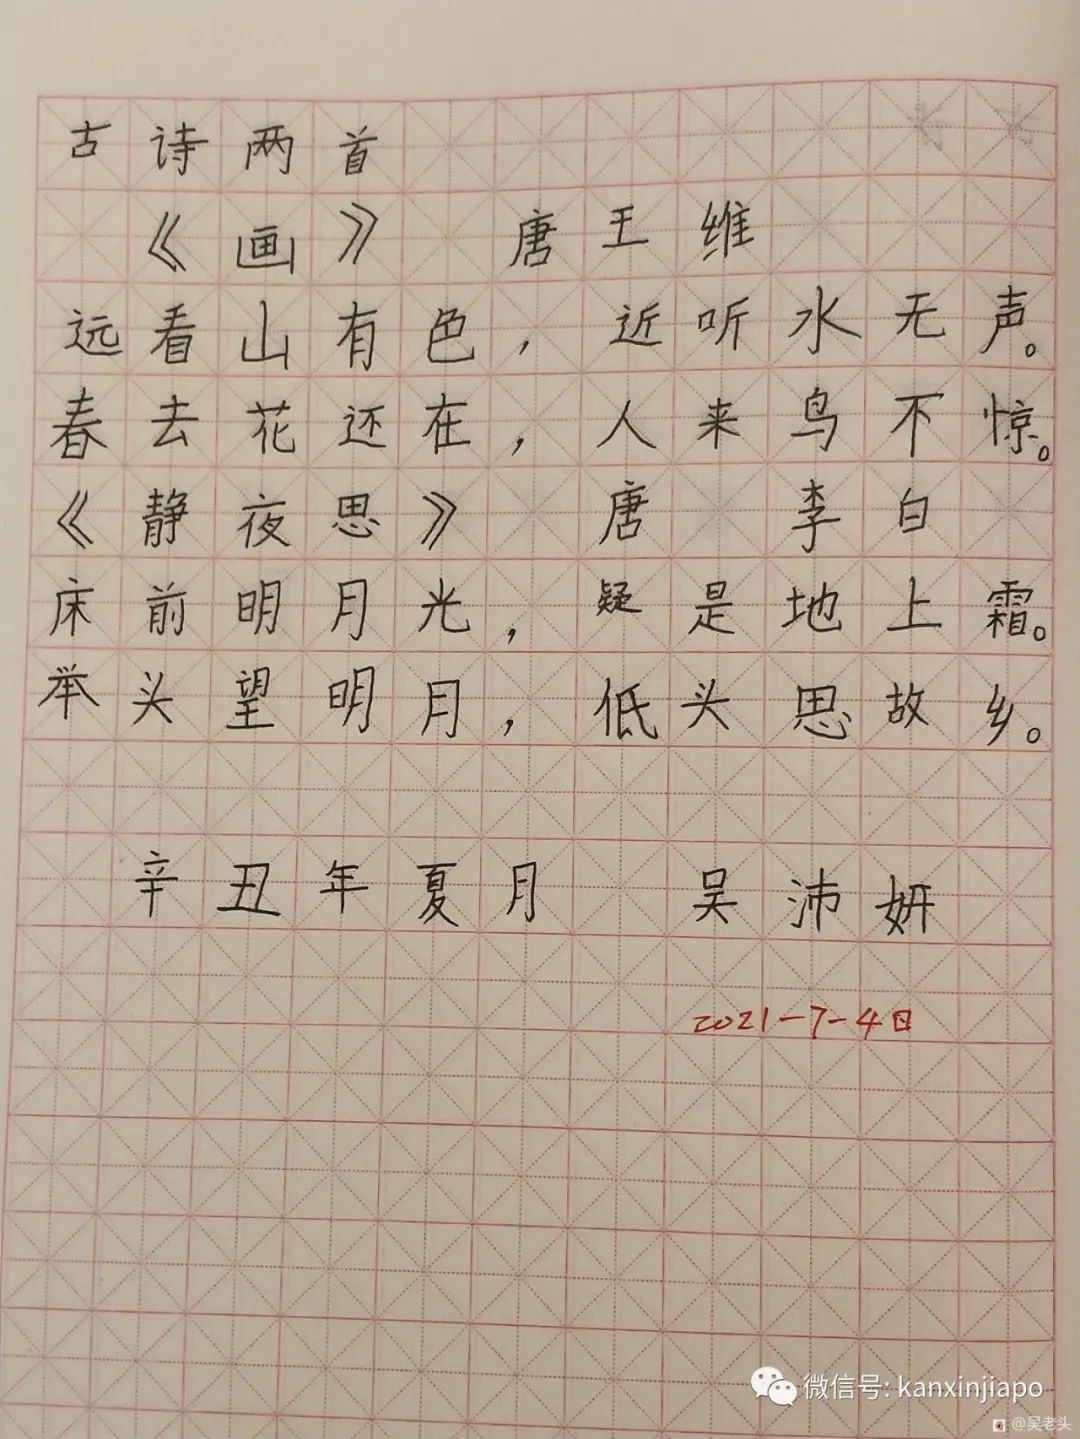 古诗两首
《画》 唐王维
远看山有色，近听水无声。
春去花还在，人来鸟不惊。
《静夜思》 唐 李白
床前明月光，疑是地上霜。
举头望明月，低头思故乡。
辛丑年夏月 吴沛妍
2021-7-4日
微信号: kanxinjiapo
@吴老头